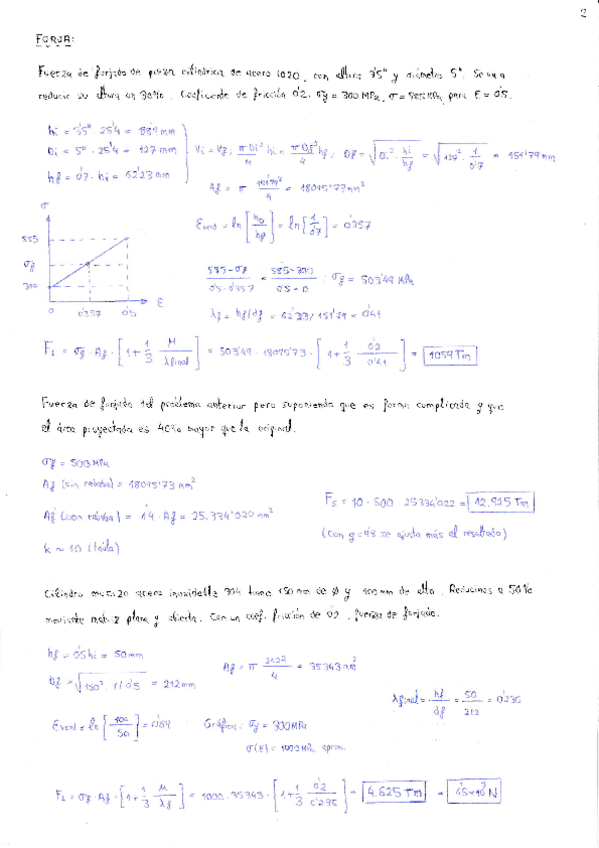 2
FORJA:
Fuerza de forjado de pieza cilíndrica de acero 1020, con altura 3'5" y diámetro 5". Se va a
reducir su altura un 30%. Coeficiente de fricción 0'2. σy = 300 MPa, σ = 585 MPa, para ε = 0'5.
hi = 3'5" · 25'4 = 88'9 mm
Di = 5" · 25'4 = 127 mm
hf = 0'7 · hi = 62'23 mm
Vi = Vf; πDi²/4 hi = πDf²/4 hf; Df = √(Di² · hi/hf) = √(127² · 1/0'7) = 151'79 mm
Af = π 151'79²/4 = 18095'73 mm²
σ
585
σf
300
0 0'357 0'5 ε
εverd = ln [ho/hf] = ln [1/0'7] = 0'357
(585-σf)/(0'5-0'357) = (585-300)/(0'5-0) ; σf = 503'49 MPa
λf = hf/df = 62'23/151'79 = 0'41
FL = σf · Af · [1 + 1/3 μ/λfinal] = 503'49 · 18095'73 · [1 + 1/3 0'2/0'41] = 1059 Tm
Fuerza de forjado del problema anterior pero suponiendo que es forma complicada y que
el área proyectada es 40% mayor que la original.
σf = 503 MPa
Af (sin rebaba) = 18095'73 mm²
Af (con rebaba) = 1'4 · Af = 25.334'020 mm²
k ~ 10 (tabla)
FS = 10 · 500 · 25334'022 = 12.925 Tm
(con g=9'8 se ajusta más al resultado)
Cilindro macizo acero inoxidable 304 tiene 150 mm de φ y 100 mm de alto. Reducimos a 50%
mediante matriz plana y abierta. Con un coef. fricción de 0'2, fuerza de forjado.
hf = 0'5 hi = 50 mm
Df = √(150² · 1/0'5) = 212 mm
Af = π 212²/4 = 35343 mm²
λfinal = hf/df = 50/212 = 0'236
εverd = ln [100/50] = 0'69
Gráfica: σy = 300 MPa
σ(ε) = 1000 MPa aprox.
FL = σf · Af · [1 + 1/3 μ/λf] = 1000 · 35343 · [1 + 1/3 0'2/0'236] = 4.625 Tm